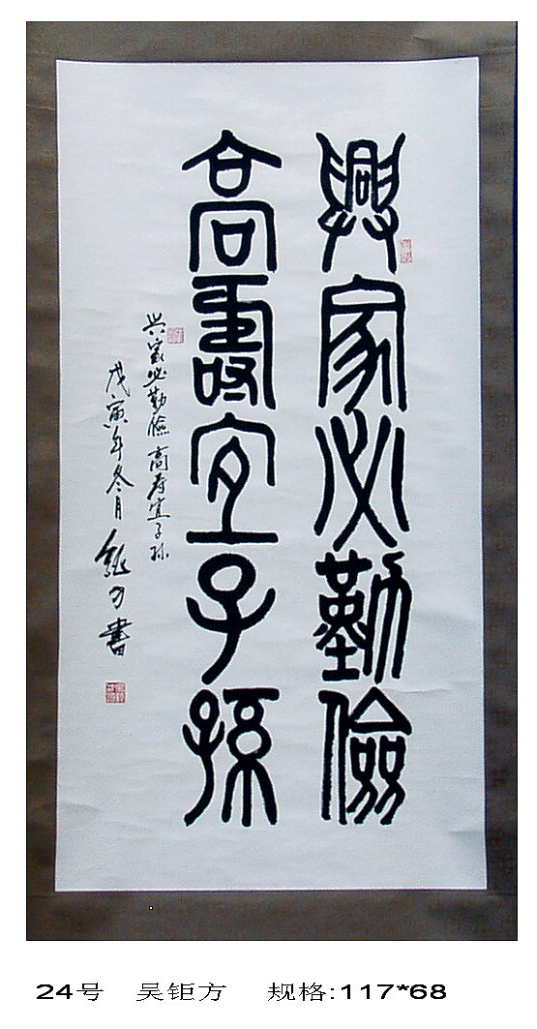 興家必勤儉
高壽宜子孫
兴家必勤儉 高寿宜子孙
戊寅年冬月 鉅方書
24号 吴钜方 规格:117*68